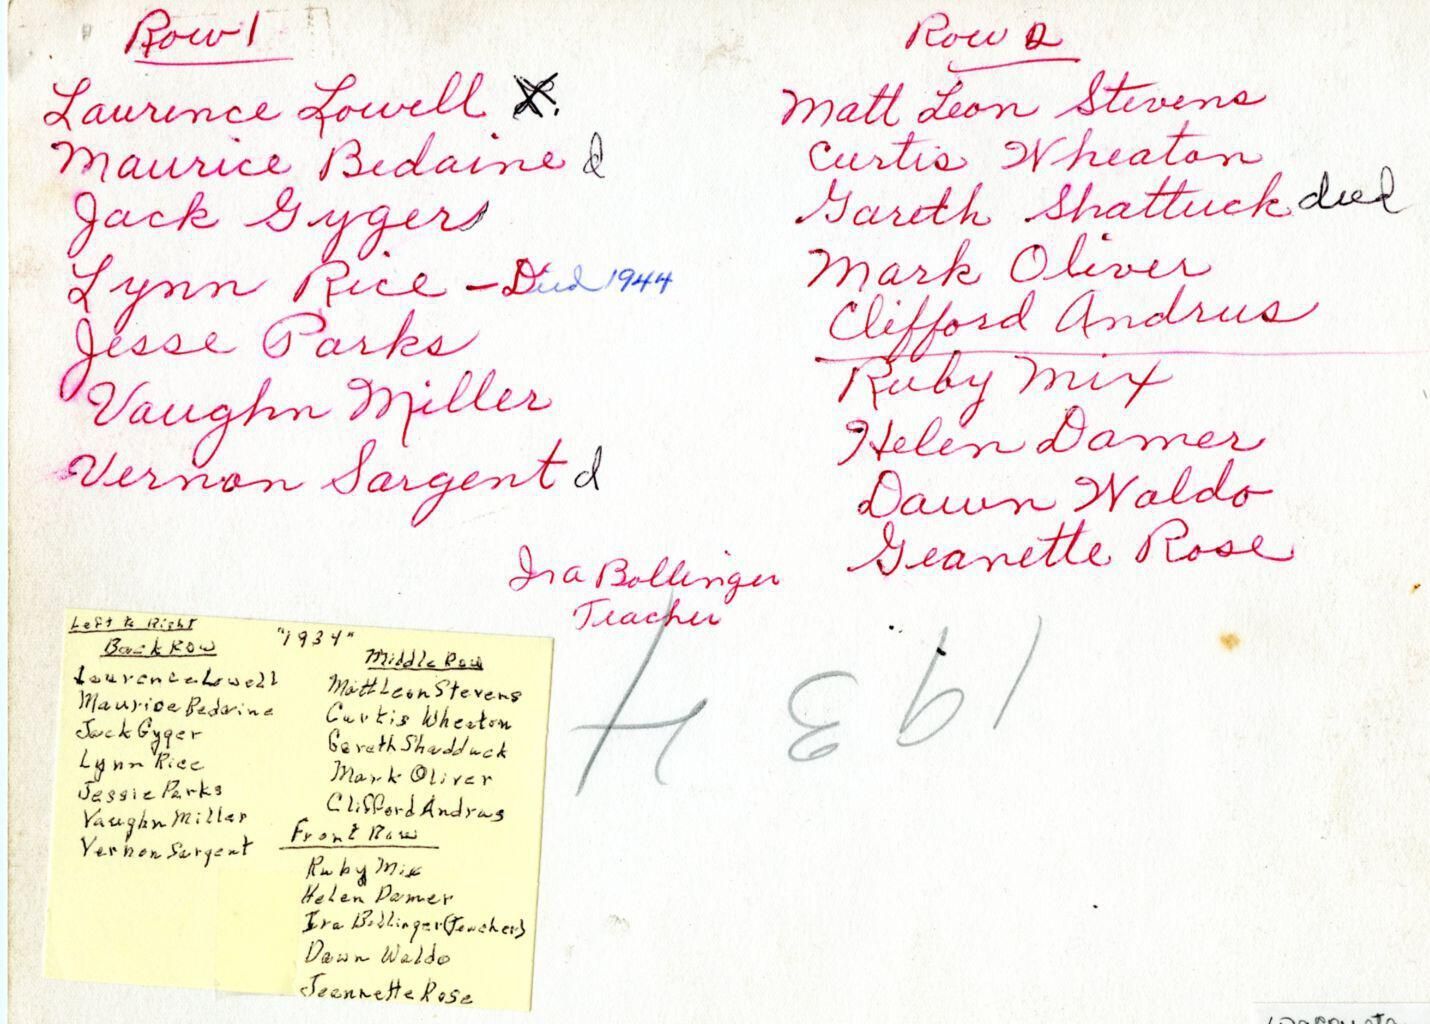 Row 1
Laurence Lowell
Maurice Bedaine d
Jack Gygers
Lynn Rice - Died 1944
Jesse Parks
Vaughn Miller
Vernon Sargent d
Row 2
Matt Leon Stevens
Curtis Wheaton
Gareth Shattuck died
Mark Oliver
Clifford Andrus
Ruby Mix
Helen Damer
Dawn Waldo
Geanette Rose
Ira Bollinger
Teacher
1934
Left to Right
"1934"
Back Row
Laurence Lowell
Maurice Bedaine
Jack Gyger
Lynn Rice
Jessie Parks
Vaughn Miller
Vernon Sargent
Middle Row
Matt Leon Stevens
Curtis Wheaton
Gareth Shadduck
Mark Oliver
Clifford Andrus
Front Row
Ruby Mix
Helen Damer
Ira Bollinger (Teacher)
Dawn Waldo
Jeannette Rose